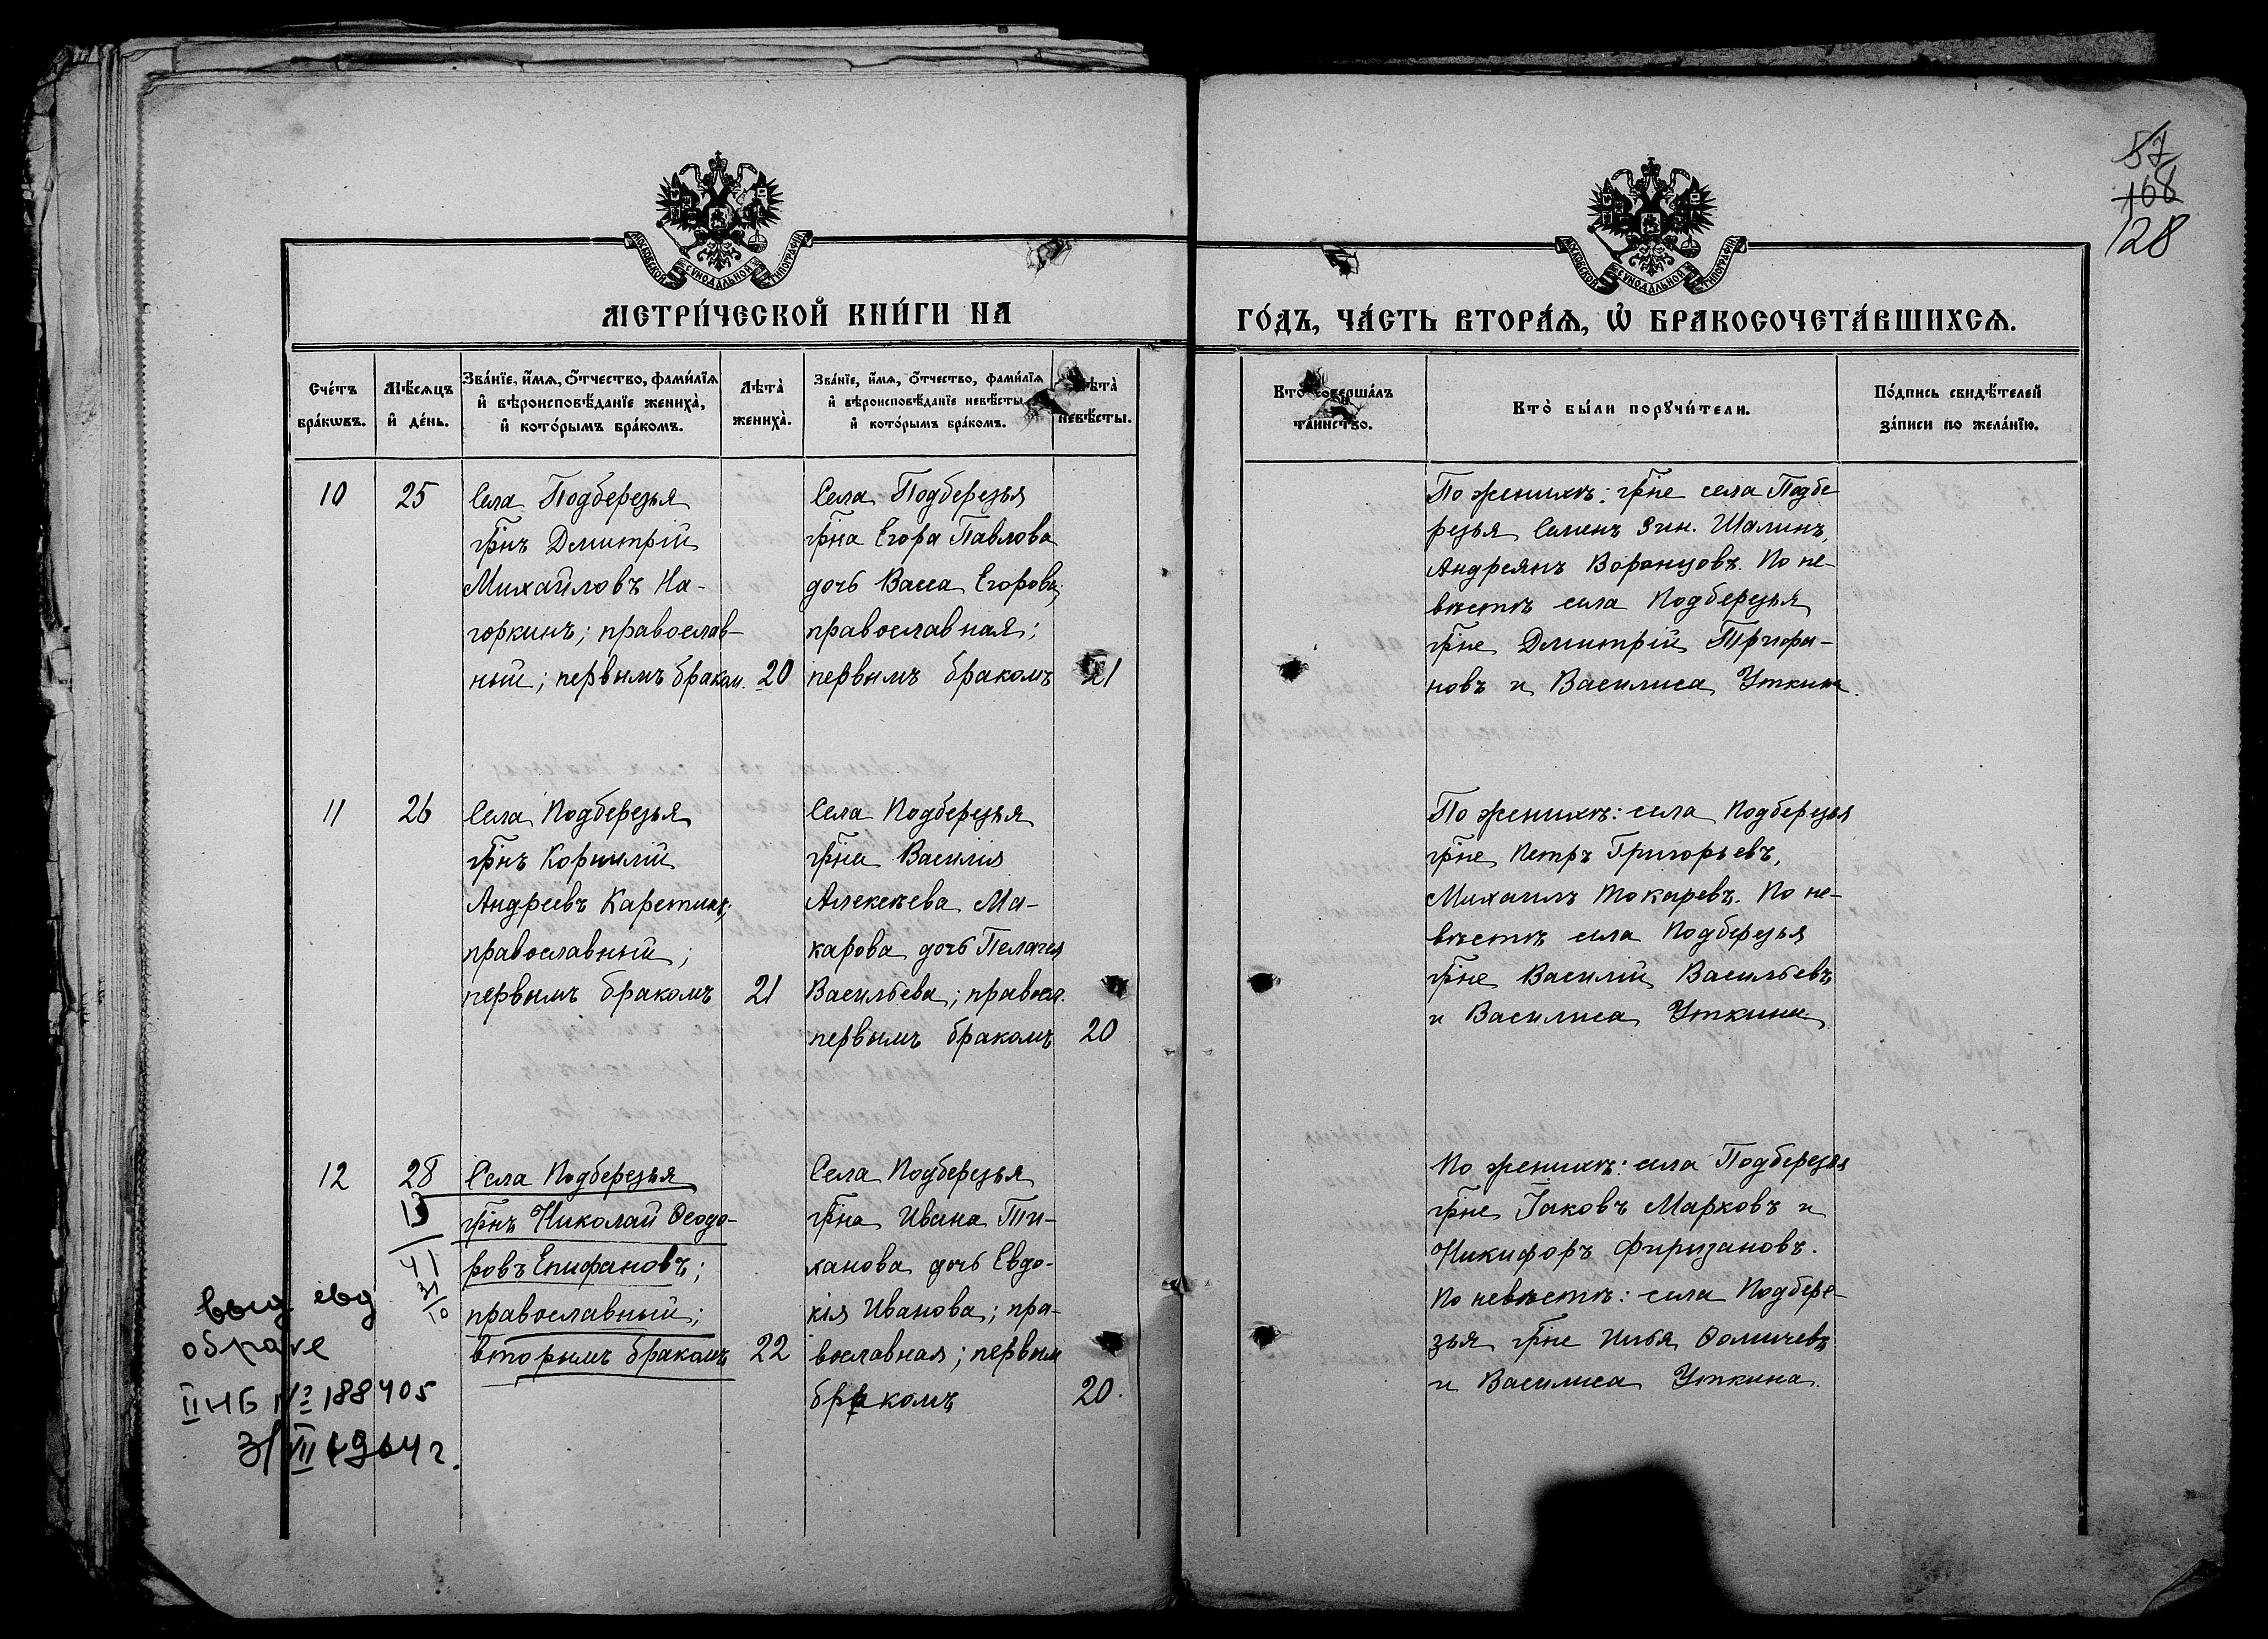 57
168
128
МОСКОВСКОЙ СѴНОДАЛЬНОЙ ТИПОГРАФІИ
МОСКОВСКОЙ СѴНОДАЛЬНОЙ ТИПОГРАФІИ
МЕТРИ́ЧЕСКОЙ КНИ́ГИ НА
ГО́ДЪ, ЧА́СТЬ ВТОРА́Ѧ, Ѡ҆ БРАКОСОЧЕТА́ВШИХСѦ.
Сче́тъ
бра́кѡвъ.
Мѣ́сяцъ
и҆ де́нь.
Зва́нїе, и҆́мѧ, ѻ҆́тчество, фами́лїѧ
и҆ вѣроисповѣ́данїе жениха̀,
и҆ кото́рымъ бра́комъ.
Лѣта̀
жениха̀.
Зва́нїе, и҆́мѧ, ѻ҆́тчество, фами́лїѧ
и҆ вѣроисповѣ́данїе невѣ́сты,
и҆ кото́рымъ бра́комъ.
Лѣта̀
невѣ́сты.
Кто̀ соверша́лъ
та́инство.
Кто̀ бы́ли порꙋчи́тели.
По́дпись свидѣ́телей
за́писи по жела́нїю.
10
25
Села Подберезья
гр̃нъ Дмитрій
Михайловъ На-
горкинъ; православ-
ный; первымъ браком.
20
Села Подберезья
гр̃на Егора Павлова
дочь Васса Егорова,
православная;
первымъ бракомъ
21
По женихѣ: гр̃не села Подбе
резья Семенъ Зин. Шалинъ,
Андреянъ Воронцовъ. По не-
вѣстѣ села Подберезья
гр̃не Дмитрій Трифо-
новъ и Василиса Уткина.
11
26
Села Подберезья
гр̃нъ Корнилій
Андреевъ Каретинъ;
православный;
первымъ бракомъ
21
Села Подберезья
гр̃на Василія
Алексѣева Ма-
карова дочь Пелагея
Васильева; правосл.
первымъ бракомъ
20
По женихѣ: села Подберезья
гр̃не Петръ Григорьевъ,
Михаилъ Токаревъ. По не-
вѣстѣ села Подберезья
гр̃не Василій Васильевъ
и Василиса Уткина
12
28
Села Подберезья
гр̃нъ Николай Ѳеодо-
ровъ Епифановъ;
православный;
вторымъ бракомъ
22
Села Подберезья
гр̃на Ивана Ти-
ханова дочь Евдо-
кія Иванова; пра-
вославная; первым
бракомъ
20.
По женихѣ: села Подберезья
гр̃не Іаковъ Марковъ и
Никифоръ Фирузановъ.
По невѣстѣ: села Подбере-
зья гр̃не Илья Ѳомичевъ
и Василиса Уткина.
13
41
31
10
выд свд
о браке
II НБ № 188405
3/VII 1964 г.